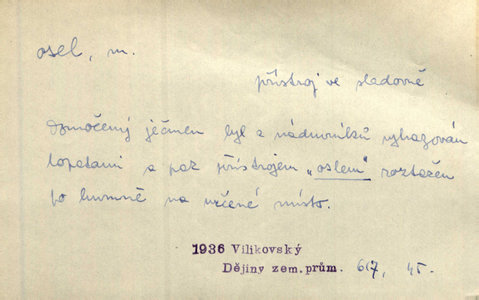 osel, m.
přístroj ve sladovně
Domočený ječmen byl z náduvníků vyhazován
lopatami a pak přístrojem „oslem" roztažen
po humně na určené místo.
1936 Vilikovský
Dějiny zem. prům. 617, 45.